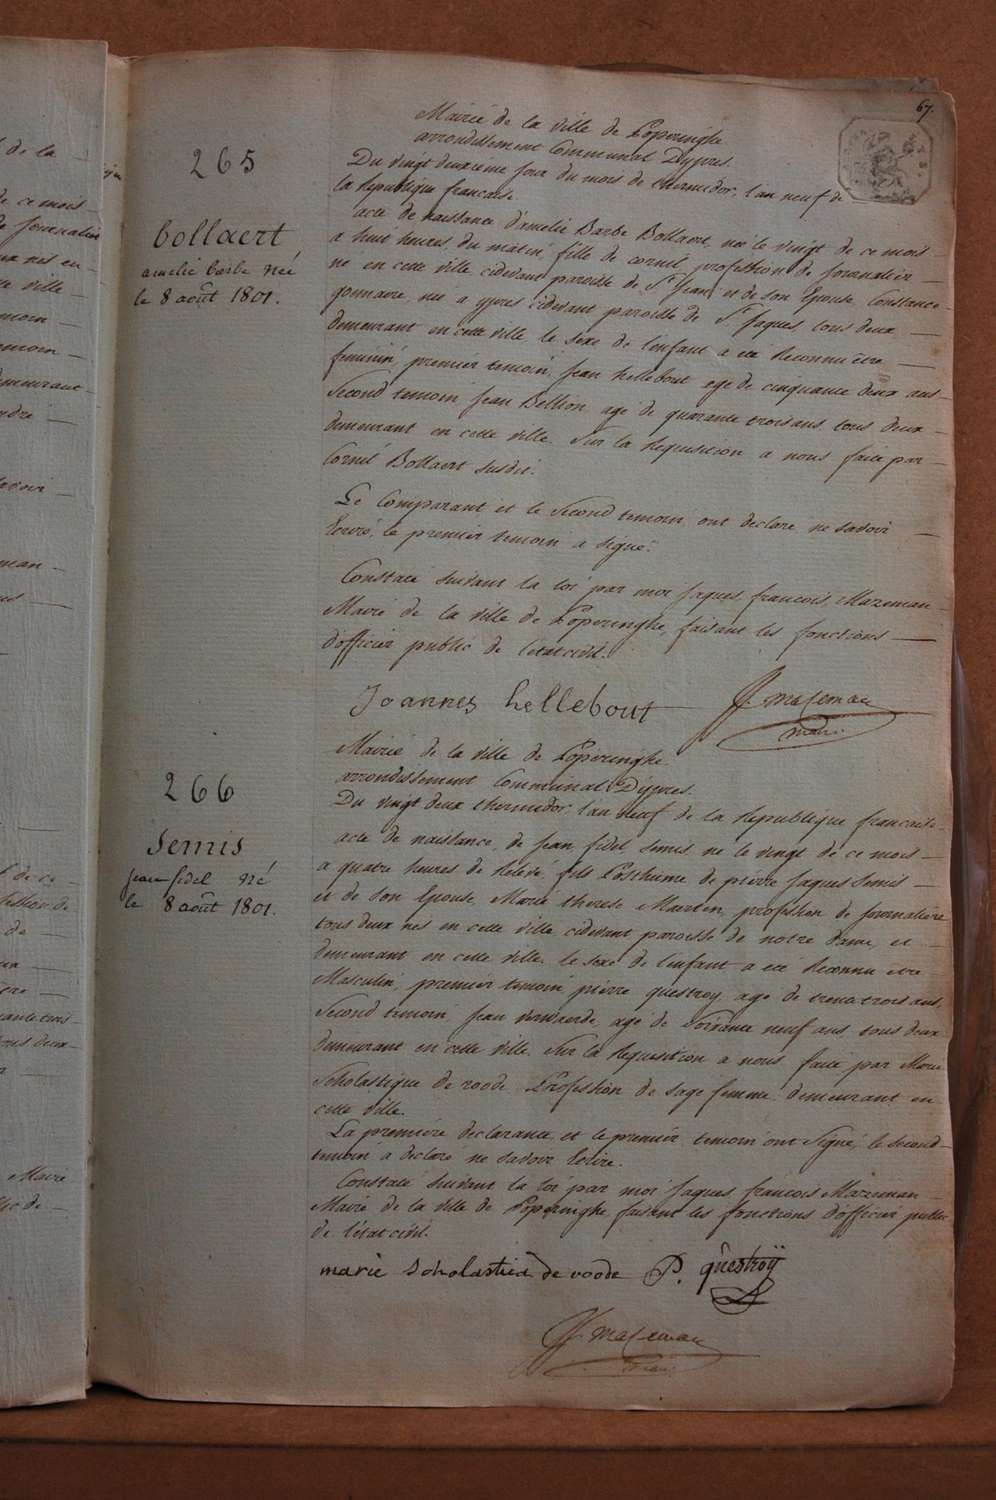 67.
265
bollaert
amelie barbe née
le 8 août 1801.
Mairié de la ville de Poperinghe
arrondissement Communal Dypres.
Du vingt deuxieme jour du mois de thermidor, l'an neuf de
la Republique francaise.
acte de naissance d'amelie Barbe Bollaert, neé le vingt de ce mois
a huit heures du matin, fille de cornil, profession de journalier
né en cette ville cidevant paroisse de St Jean et de son Epouse Constance
gomaire, neé a ypres cidevant paroisse de St Jaques, tous deux
demeurant en cette ville, le sexe de l'enfant a été Reconnu être
feminin, premier temoin, Jean hellebout agé de cinquante deux ans
Second temoin Jean Bellion, agé de quarante trois ans tous deux
demeurant en cette ville. Sur la Requisition a nous faite par
Cornil Bollaert susdit.
Le Comparant et le Second temoin, ont declaré ne savoir
Ecrire, le premier temoin a signé.
Constaté suivant la loi par moi Jaques francois, Mazeman
Mairé de la ville de Poperinghe, faisant les fonctions
d'officier public de l'état civil.
Joannes hellebout J. mazeman
maire
266
Semis
jean fidel né
le 8 août 1801.
Mairié de la ville de Poperinghe.
arrondissement Communal D'ypres.
Du vingt deux thermidor, l'an neuf de la Republique francaise
acte de naissance, de jean fidel Semis né le vingt de ce mois
a quatre heures de Relevé, fils Posthume de pierre Jaques Semis
et de son Epouse, Marie therese Martin, profession de journaliere
tous deux nés en cette ville, cidevant paroisse de notre dame, et
demeurant en cette ville. le sexe de l'enfant a été Reconnu être
Masculin, premier temoin, pierre questroy, agé de trente trois ans,
Second temoin, Jean agé de Soixante neuf ans, tous deux
demeurant en cette ville. Sur la Requisition a nous faite par Marie
Scholastique de roode, Profession de sage femme, demeurant en
cette ville.
La premiere declarante, et le premier temoin ont signé, le second
temoin a declaré ne savoir Ecrire.
Constaté suivant la loi par moi Jaques francois Mazeman
Mairé de la ville de Poperinghe, faisant les fonctions d'officier public
de l'état civil.
marie scholastica de roode P. questroÿ
J. mazeman
maire